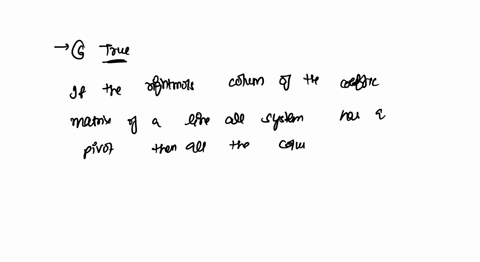 → G True
If the rightmos column of the coeffic
matrix of a line all system has a
pivot then all the colu